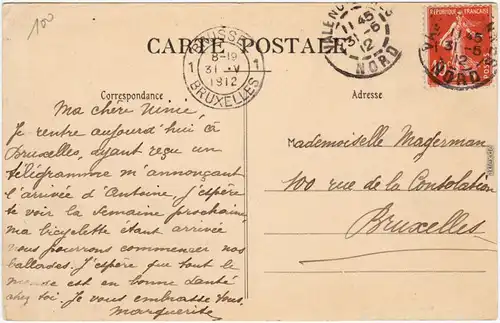 100
CARTE POSTALE
Correspondance
Adresse
BRUSSEL
8-19
1 31-V 1
1912
BRUXELLES
11 45
31-5
12
NORD
REPUBLIQUE FRANÇAISE
11 45
31-5
12
NORD
10
POSTES
Ma chère Ninie,
Je rentre aujourd'hui à
Bruxelles, ayant reçu un
télégramme m'annonçant
l'arrivée d'Antoine, j'espère
te voir la semaine prochain,
ma bicyclette étant arrivée
nous pourrons commencer nos
ballades. J'espère que tout le
monde est en bonne santé
chez toi. Je vous embrasse tous.
Marguerite
Mademoiselle Magerman
100 rue de la Consolation
Bruxelles